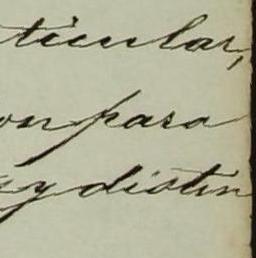 ticular,
on para
s y distin